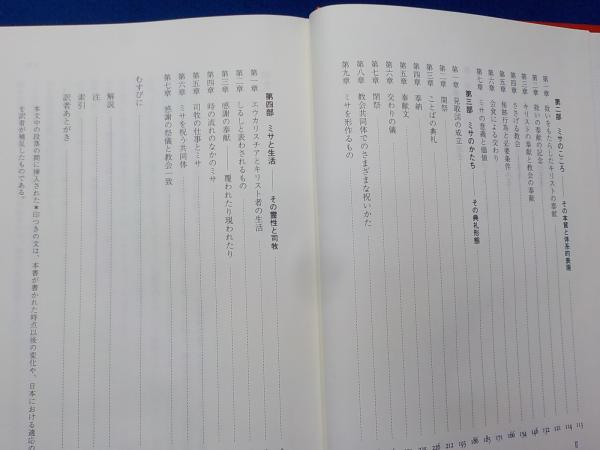 第二部 ミサのこころ その本質と体系的表現
第一章 救いをもたらしたキリストの奉献
第二章 救いの奉献の記念
第三章 キリストの奉献と教会の奉献
第四章 ささげる教会
第五章 秘跡行為と必要条件
第六章 会食による交わり
第七章 ミサの意義と価値
第三部 ミサのかたち その典礼形態
第一章 見取図の成立
第二章 開祭
第三章 ことばの典礼
第四章 奉納
第五章 奉献文
第六章 交わりの儀
第七章 閉祭
第八章 教会共同体でのさまざまな祝いかた
第九章 ミサを形作るもの
第四部 ミサと生活 その霊性と司牧
第一章 エウカリスチアとキリスト者の生活
第二章 しるしと表わされるもの
第三章 感謝の奉献――覆われたり現われたり
第四章 時の流れのなかのミサ
第五章 司牧の仕事とミサ
第六章 ミサを祝う共同体
第七章 感謝の祭儀と教会一致
むすびに
解説
注
索引
訳者あとがき
本文中の段落の間に挿入された★印つきの文は、本書が書かれた時点以後の変化や、日本における適応の
を訳者が補足したものである。